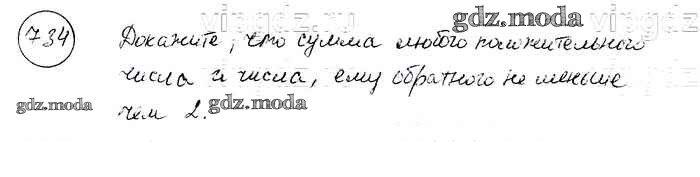 gdz.moda
734 Докажите, что сумма любого положительного
числа и числа, ему обратного не меньше
gdz.moda gdz.moda
чем 2.